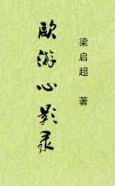 欧游心影录
梁启超 著